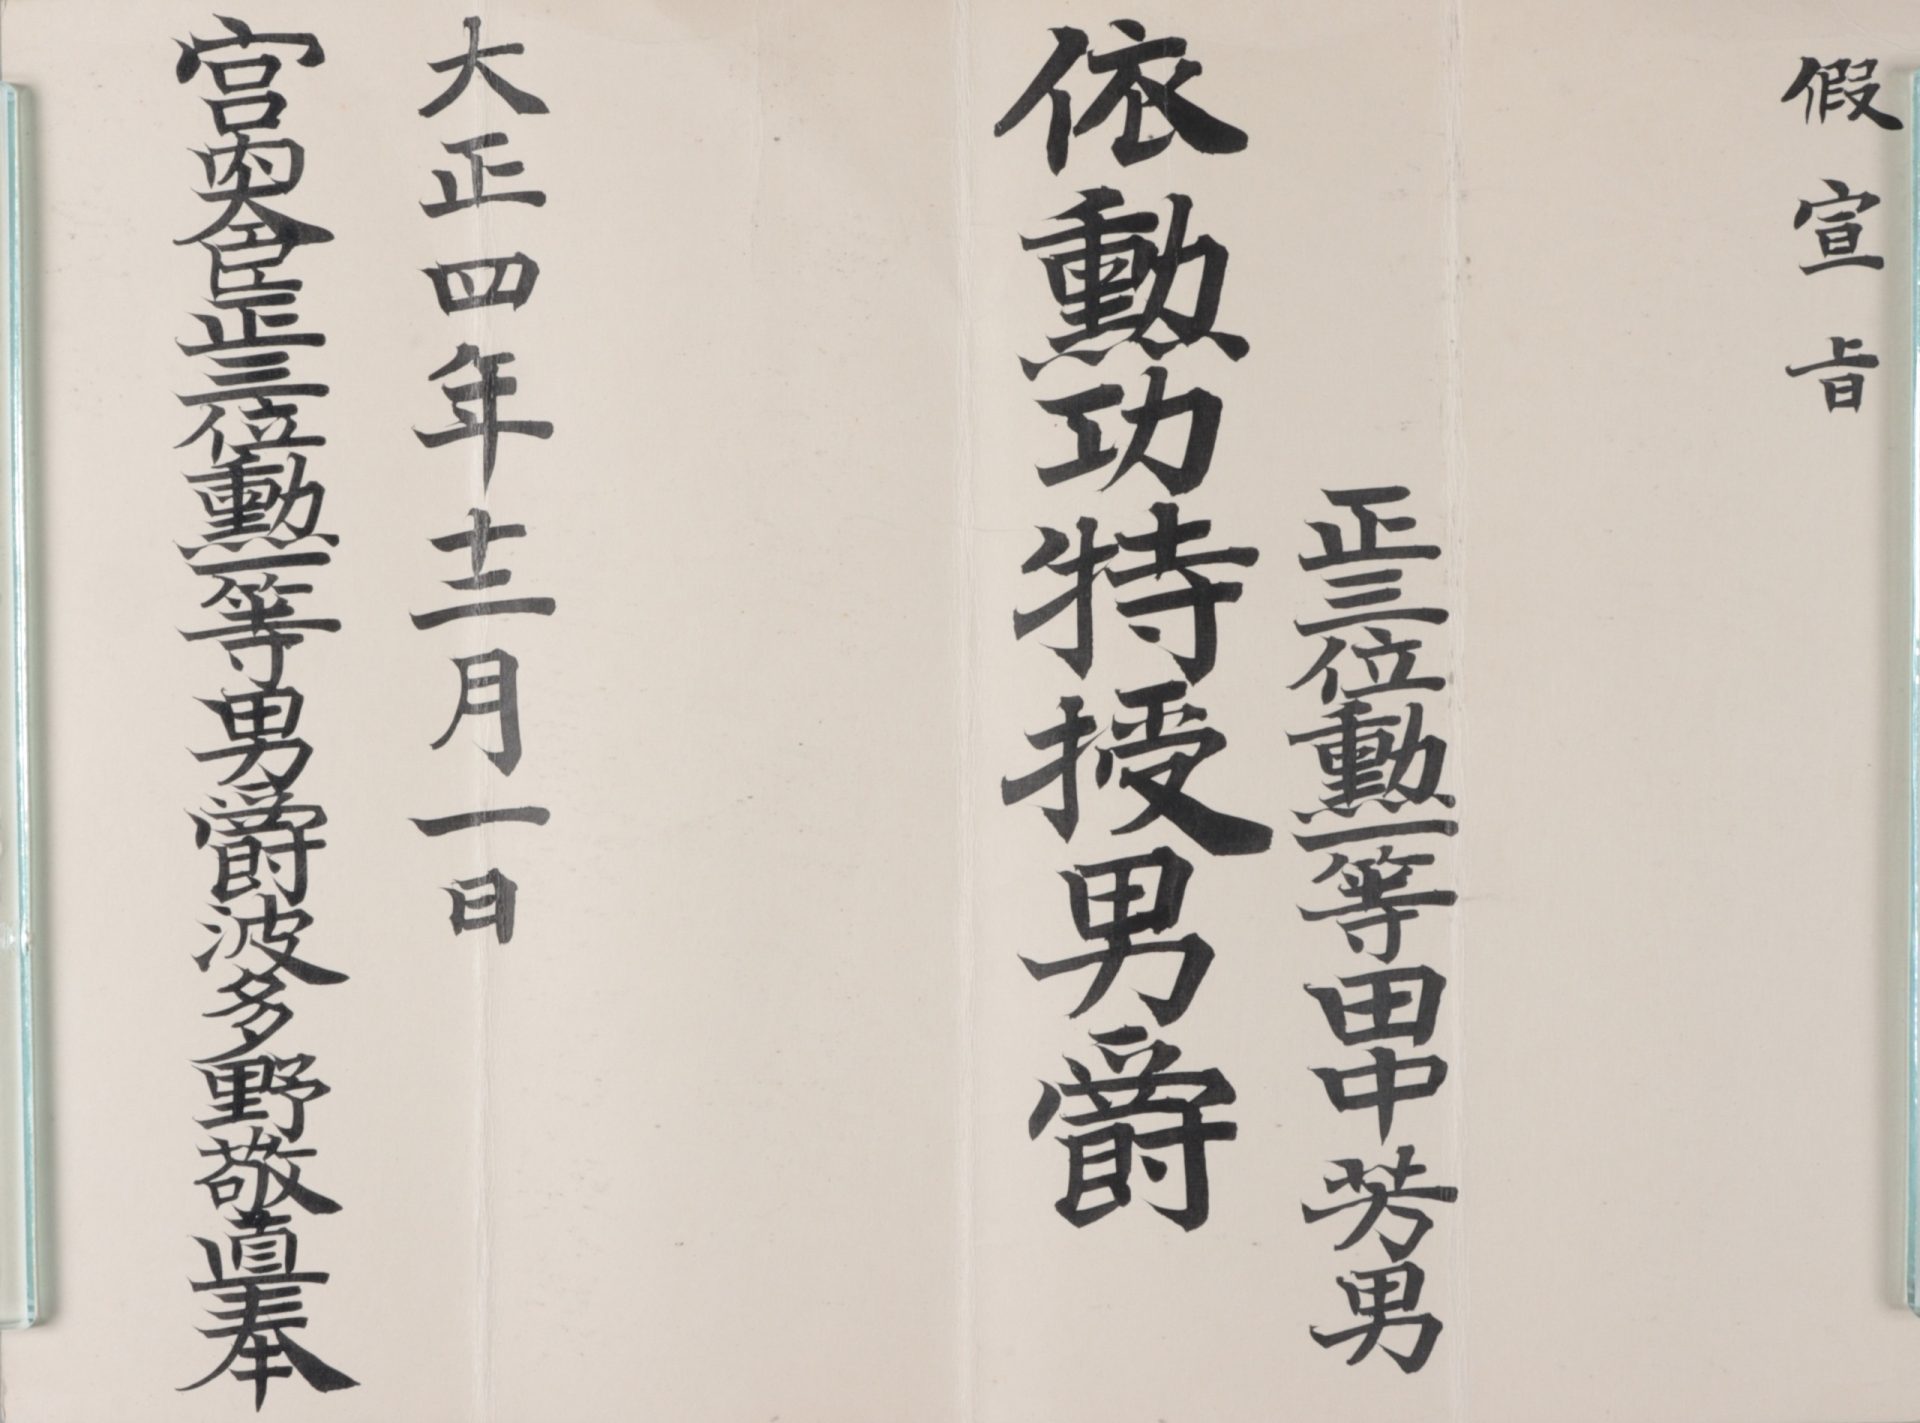 假宣旨
正三位勳一等田中芳男
依勳功特授男爵
大正四年十二月一日
宮內大臣正三位勳一等男爵波多野敬直奉